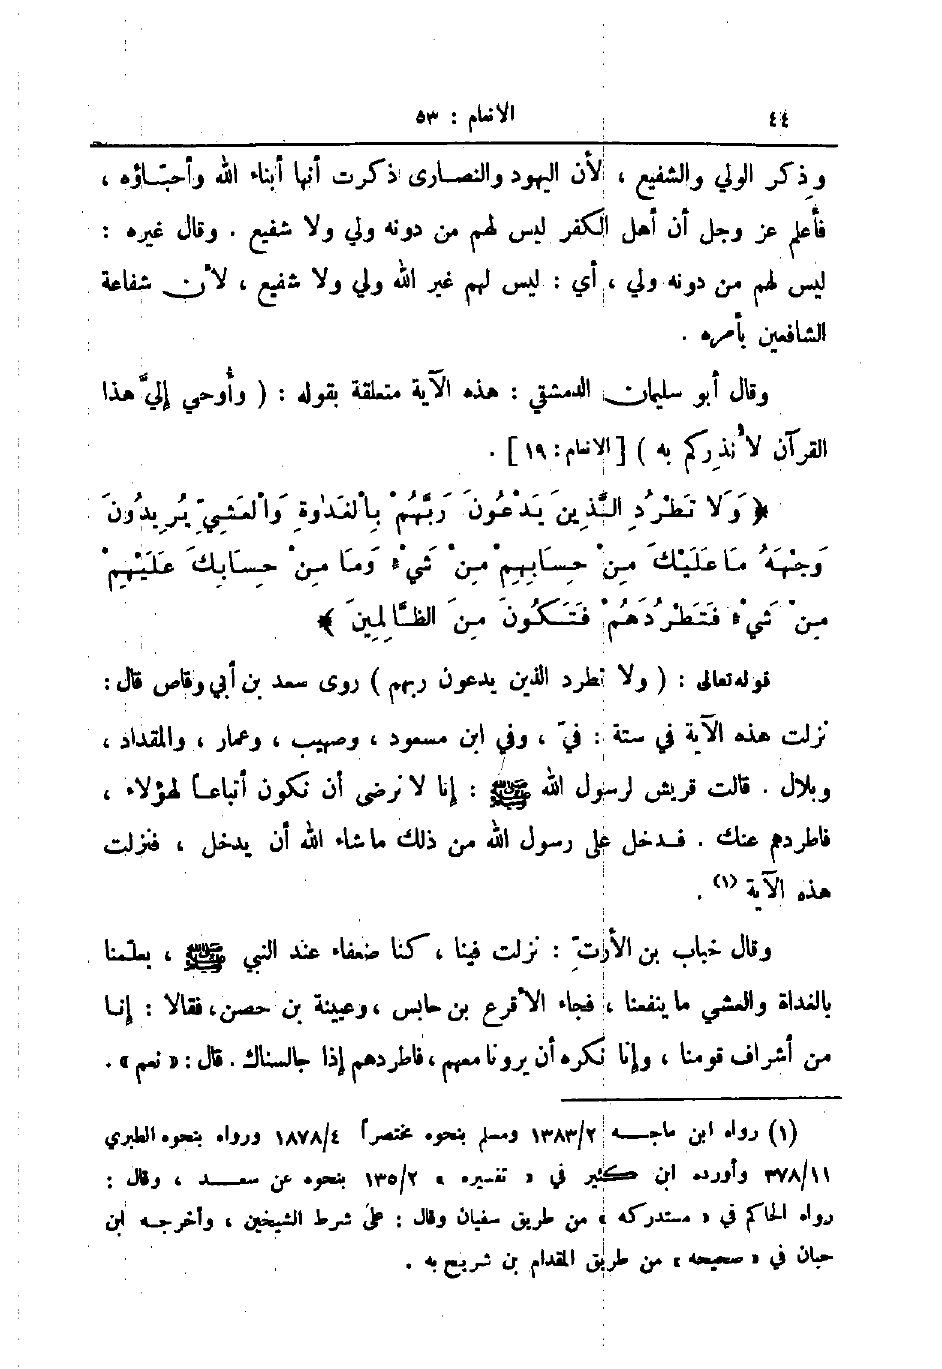 ٤٤ الانعام : ٥٣
وذكر الولي والشفيع ، لأن اليهود والنصارى ذكرت أنها أبناء الله وأحبّاؤه ،
فأعلم عز وجل أن أهل الكفر ليس لهم من دونه ولي ولا شفيع . وقال غيره :
ليس لهم من دونه ولي ، أي : ليس لهم غير الله ولي ولا شفيع ، لأن شفاعة
الشافعين بأمره .
وقال أبو سليمان الدمشقي : هذه الآية متعلقة بقوله : ( وأُوحي إليَّ هذا
القرآن لأُنذِركم به ) [ الانعام : ١٩ ] .
﴿ وَلَا تَطْرُدِ الَّذِينَ يَدْعُونَ رَبَّهُمْ بِالْغَدٰوةِ وَالْعَشِيِّ يُرِيدُونَ
وَجْهَهُ مَا عَلَيْكَ مِنْ حِسَابِهِمْ مِنْ شَيْءٍ وَمَا مِنْ حِسَابِكَ عَلَيْهِمْ
مِنْ شَيْءٍ فَتَطْرُدَهُمْ فَتَكُونَ مِنَ الظَّالِمِينَ ﴾
قوله تعالى : ( ولا تطرد الذين يدعون ربهم ) روى سعد بن أبي وقاص قال :
نزلت هذه الآية في ستة : فيّ ، وفي ابن مسعود ، وصهيب ، وعمار ، والمقداد ،
وبلال . قالت قريش لرسول الله ﷺ : إنا لا نرضى أن نكون أتباعاً لهؤلاء ،
فاطردهم عنك . فدخل على رسول الله من ذلك ما شاء الله أن يدخل ، فنزلت
هذه الآية (١) .
وقال خباب بن الأرتِّ : نزلت فينا ، كنا ضعفاء عند النبي ﷺ ، يعلّمنا
بالغداة والعشي ما ينفعنا ، فجاء الأقرع بن حابس ، وعيينة بن حصن ، فقالا : إنا
من أشراف قومنا ، وإنا نكره أن يرونا معهم ، فاطردهم إذا جالسناك . قال : « نعم » .
(١) رواه ابن ماجه ١٣٨٣/٢ ومسلم بنحوه مختصراً ١٨٧٨/٤ ورواه بنحوه الطبري
٣٧٨/١١ وأورده ابن كثير في « تفسيره » ١٣٥/٢ بنحوه عن سعد ، وقال :
رواه الحاكم في « مستدركه » من طريق سفيان وقال : على شرط الشيخين ، وأخرجه ابن
حبان في « صحيحه » من طريق المقدام بن شريح به .